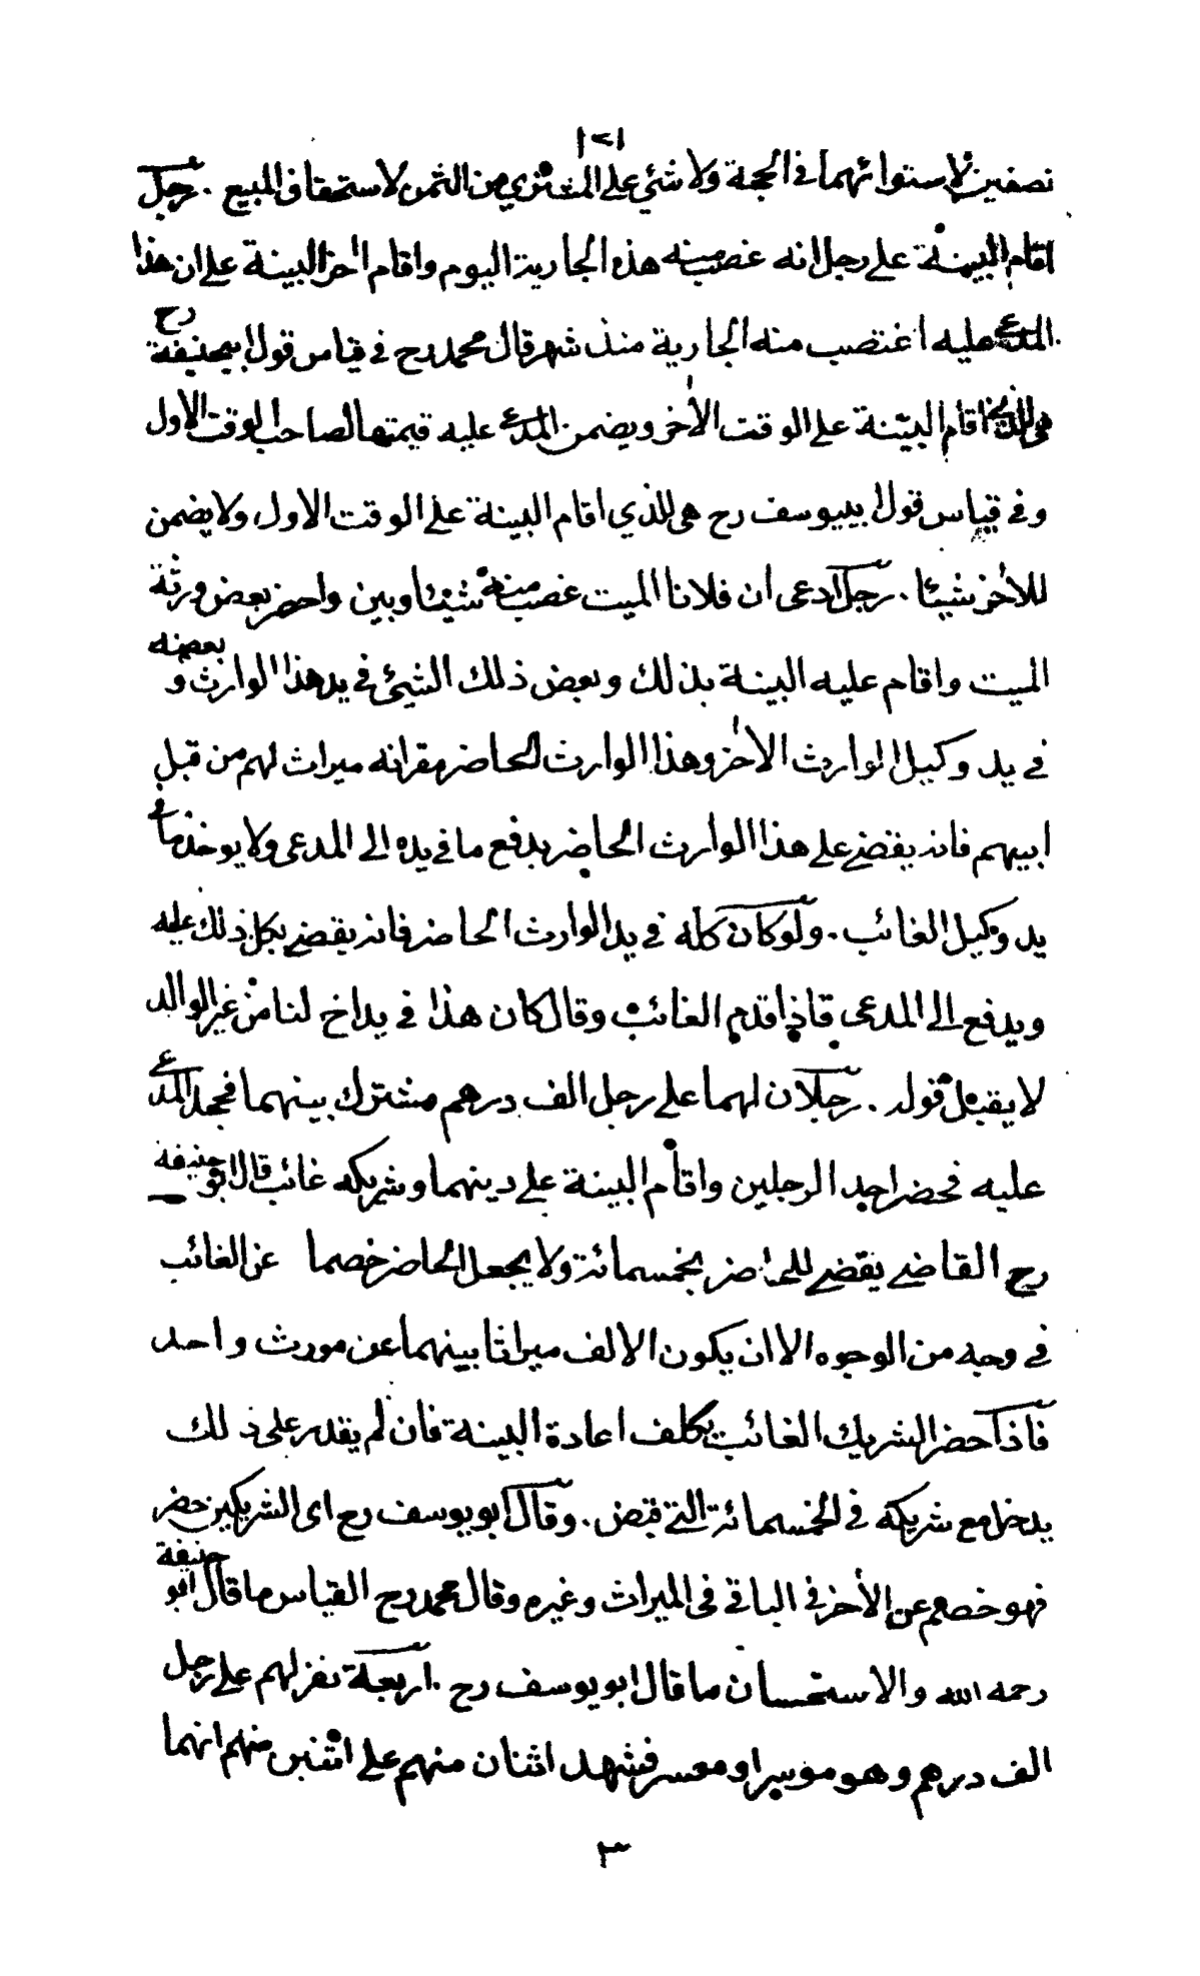 ١٢١
نصفين لاستوائهما في الحجة ولا شئ على المشتري من الثمن لاستحقاق المبيع . رجل
اقام البينة على رجل انه غصب منه هذه الجارية اليوم واقام اخر البينة على ان هذا
المدعى عليه اغتصب منه الجارية منذ شهر قال محمد رح في قياس قول ابيحنيفة رح
هى للذي اقام البينة على الوقت الأخر ويضمن المدعى عليه قيمتها لصاحب الوقت الاول
وفي قياس قول ابييوسف رح هى للذي اقام البينة على الوقت الاول ولا يضمن
للأخر شيئا . رجل ادعى ان فلانا الميت غصب منه شيئا وبين واحضر بعض ورثة
الميت واقام عليه البينة بذلك وبعض ذلك الشئ في يد هذا الوارث و بعضه
في يد وكيل الوارث الاخر وهذا الوارث الحاضر مقر انه ميراث لهم من قبل
ابيهم فانه يقضى على هذا الوارث الحاضر بدفع ما في يده الى المدعى ولا يوخذ ما في
يد وكيل الغائب . ولو كان كله في يد الوارث الحاضر فانه يقضى بكل ذلك عليه
ويدفع الى المدعى فاذا قدم الغائب وقال كان هذا في يد اخ لنا من غير الوالد
لا يقبل قوله . رجلان لهما على رجل الف درهم مشترك بينهما فجحد المدعى
عليه فحضر احد الرجلين واقام البينة على دينهما وشريكه غائب قال ابو حنيفة
رح القاضى يقضى للحاضر بخمسمائة ولا يجعل الحاضر خصما عن الغائب
في وجه من الوجوه الا ان يكون الالف ميراثا بينهما عن مورث واحد
فاذا حضر الشريك الغائب يكلف اعادة البينة فان لم يقدر على ذلك
يدخل مع شريكه في الخمسمائة التى قبض . وقال ابو يوسف رح اى الشريكين حضر
فهو خصم عن الأخر في الباقى فى الميراث وغيره وقال محمد رح القياس ما قال ابو حنيفة
رحمه الله والاستحسان ما قال ابو يوسف رح . اربعة نفر لهم على رجل
الف درهم وهو موسر او معسر فشهد اثنان منهم على اثنين منهم انهما
٣